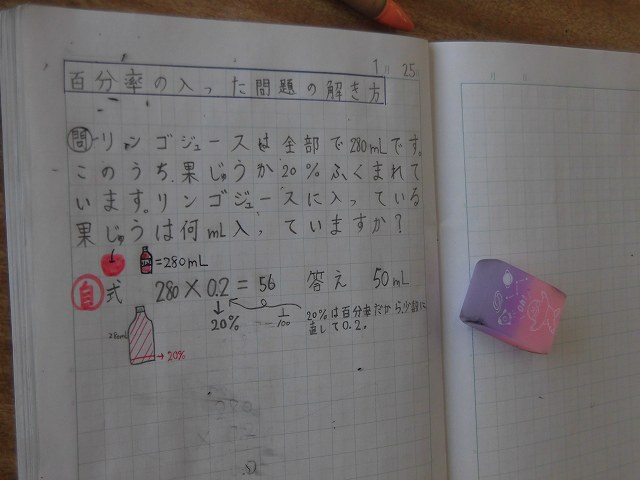 1月 25
百分率の入った問題の解き方
問 リンゴジュースは全部で280mLです。
このうち、果じゅうが20%ふくまれて
います。リンゴジュースに入っている
果じゅうは何mL入っていますか?
=280mL
自 式 280×0.2=56 答え 50mL
20% 1/100 20%は百分率だから、小数に
直して0.2。
280mL
→20%